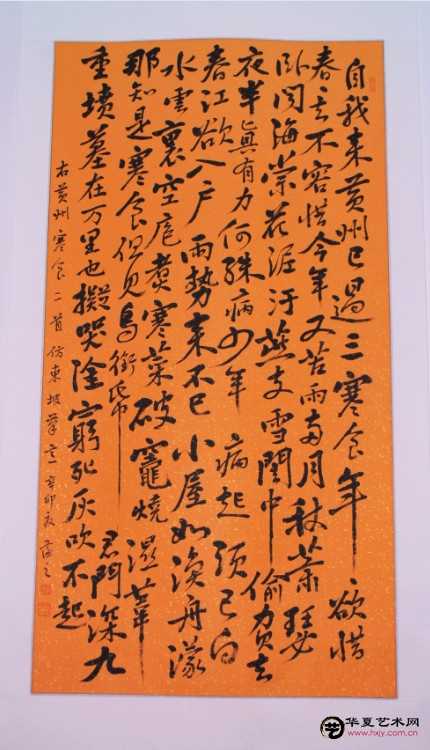 自我来黄州已過三寒食年欲惜
春去不容惜今年又苦雨两月秋萧瑟
卧闻海棠花泥汙燕支雪闇中偷負去
夜半真有力何殊病少年病起頭已白
春江欲入户雨勢来不已小屋如渔舟濛
水雲裏空庖煮寒菜破竈燒濕葦
那知是寒食但见烏銜帋君門深九
重墳墓在万里也擬哭塗窮死灰吹不起
右黄州寒食二首仿東坡筆意辛卯夏
华夏艺术网
www.hxjy.com.cn